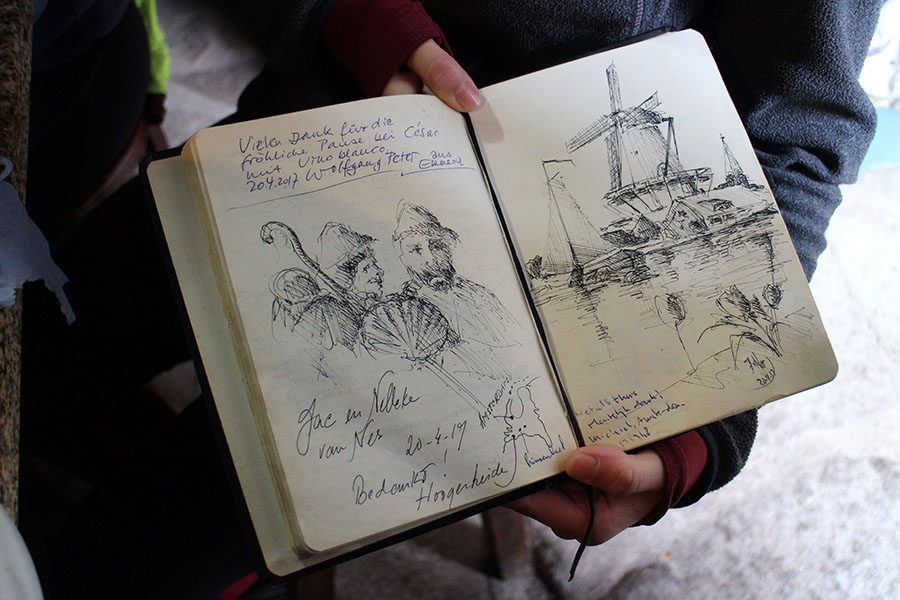 Vielen Dank für die
fröhliche Pause bei César
mit Vino blanco
20.4.2017 Wolfgang Peter aus
Emmerich
Jac en Nelleke
van Nes
20-4-17
Bedankt!
Hoogerheide
AMSTERDAM
Michiel, Amsterdam